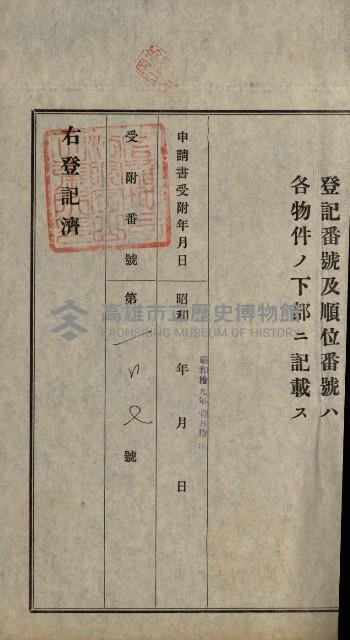 登記番號及順位番號ハ
各物件ノ下部ニ記載ス
申請書受附年月日
昭和 年 月 日
昭和拾九年壹月拾
受附番號
第 號
右登記濟
高雄市立歷史博物館
KAOHSIUNG MUSEUM OF HISTORY